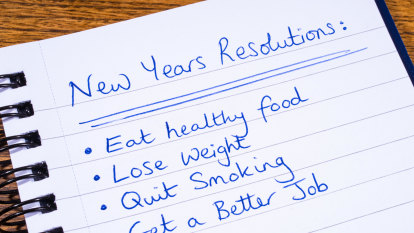 New Years Resolutions:
• Eat healthy food
• Lose Weight
• Quit Smoking
Get a Better Job